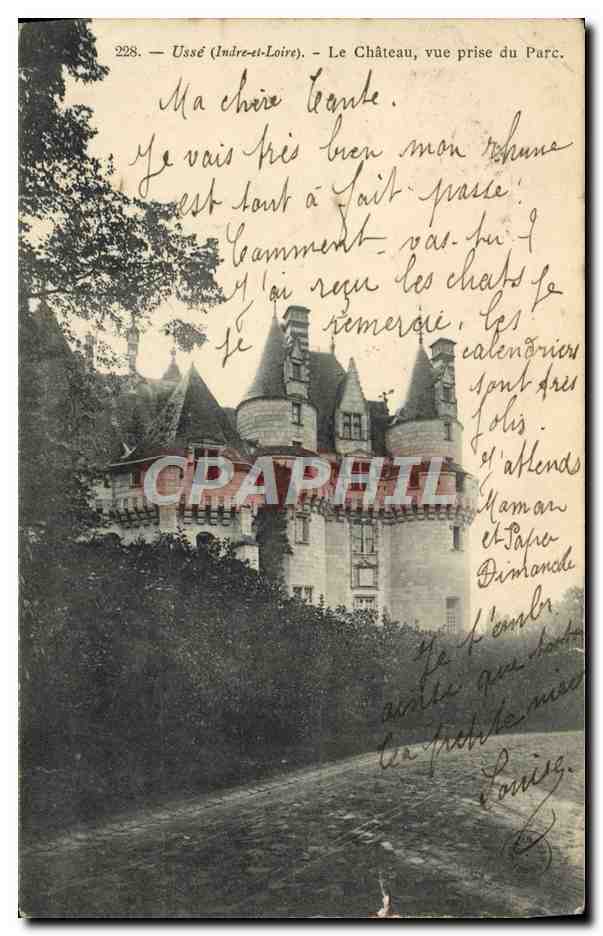 228. — Ussé (Indre-et-Loire). - Le Château, vue prise du Parc.
Ma chère Tante.
Je vais très bien mon rhume
est tout à fait passé.
Comment vas-tu ?
J'ai reçu les chats Je
te remercie. les
calendriers
sont très
jolis.
J'attends
Maman
et Papa
Dimanche
Je t'embr
ainsi que toute
ta petite nièce
Louise.
CPAPHIL